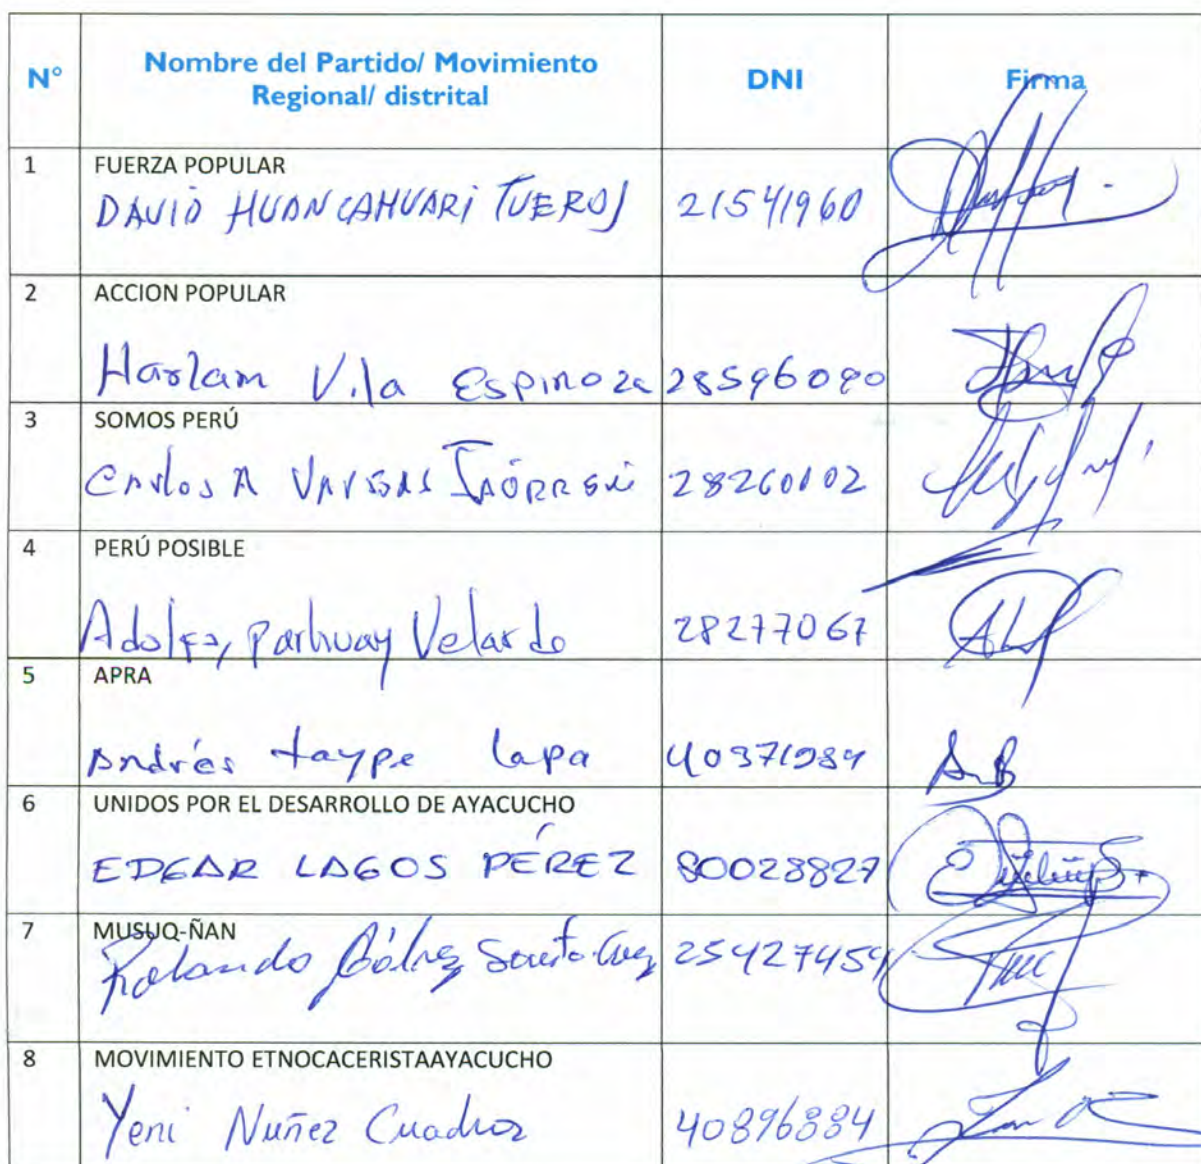 N° Nombre del Partido/ Movimiento Regional/ distrital DNI Firma
1 FUERZA POPULAR
DAVID HUANCAHUARI TUEROS 21541960
2 ACCION POPULAR
Harlam Vila Espinoza 28596090
3 SOMOS PERÚ
Carlos A VARGAS 28260102
4 PERÚ POSIBLE
Adolfo, Parhuay Velarde 28277067
5 APRA
Andrés taype lapa
6 UNIDOS POR EL DESARROLLO DE AYACUCHO
EDGAR LAGOS PÉREZ 80028827
7 MUSUQ-ÑAN
Rolando 25427454
8 MOVIMIENTO ETNOCACERISTAAYACUCHO
Yeni Nuñez Cuadros 40896884